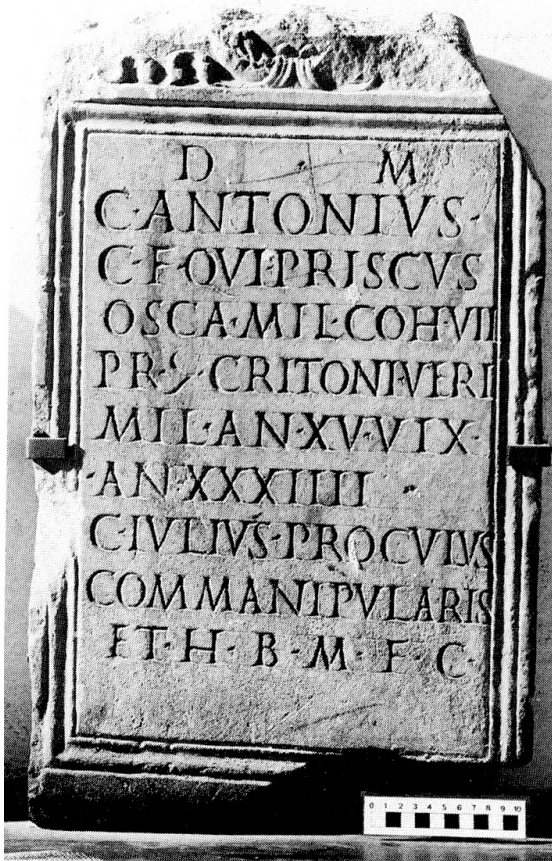 D M
C·ANTONIVS·
C·F·QVI·PRISCVS
OSCA·MIL·COH·VII
PR·Ꝣ CRITONI·VERI
MIL·AN·XV·VIX·
·AN XXXIIII
C·IVLIVS·PROCVLVS
COMMANIPVLARIS
ET·H·B·M·F·C·
0 1 2 3 4 5 6 7 8 9 10